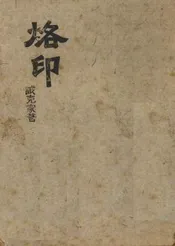 烙印
臧克家著